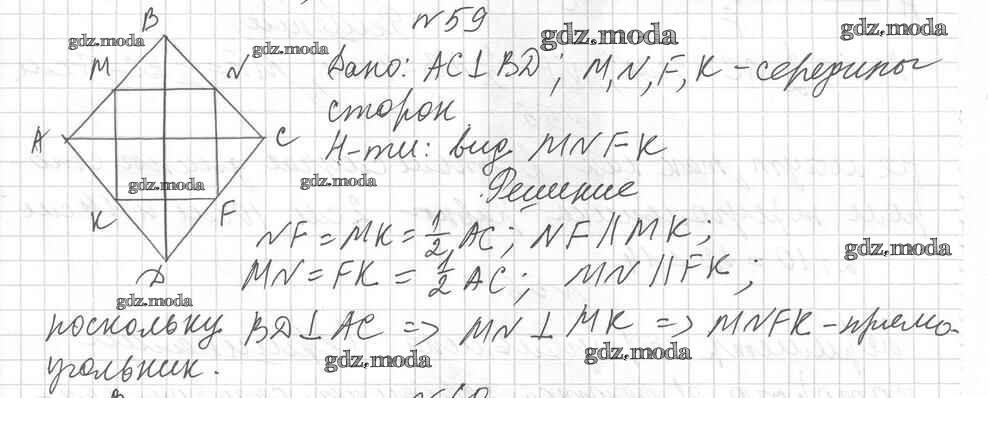 №59
B
gdz.moda
gdz.moda
gdz.moda
gdz.moda
M
N
Дано: AC⊥BD; M,N,F,K - середины
сторон
A
C
Н-ти: вид MNFK
gdz.moda
gdz.moda
Решение
K
F
NF = MK = 1/2 AC; NF || MK;
gdz.moda
D
MN = FK = 1/2 AC; MN || FK;
gdz.moda
поскольку BD⊥AC => MN⊥MK => MNFK - прямо-
gdz.moda
gdz.moda
угольник.